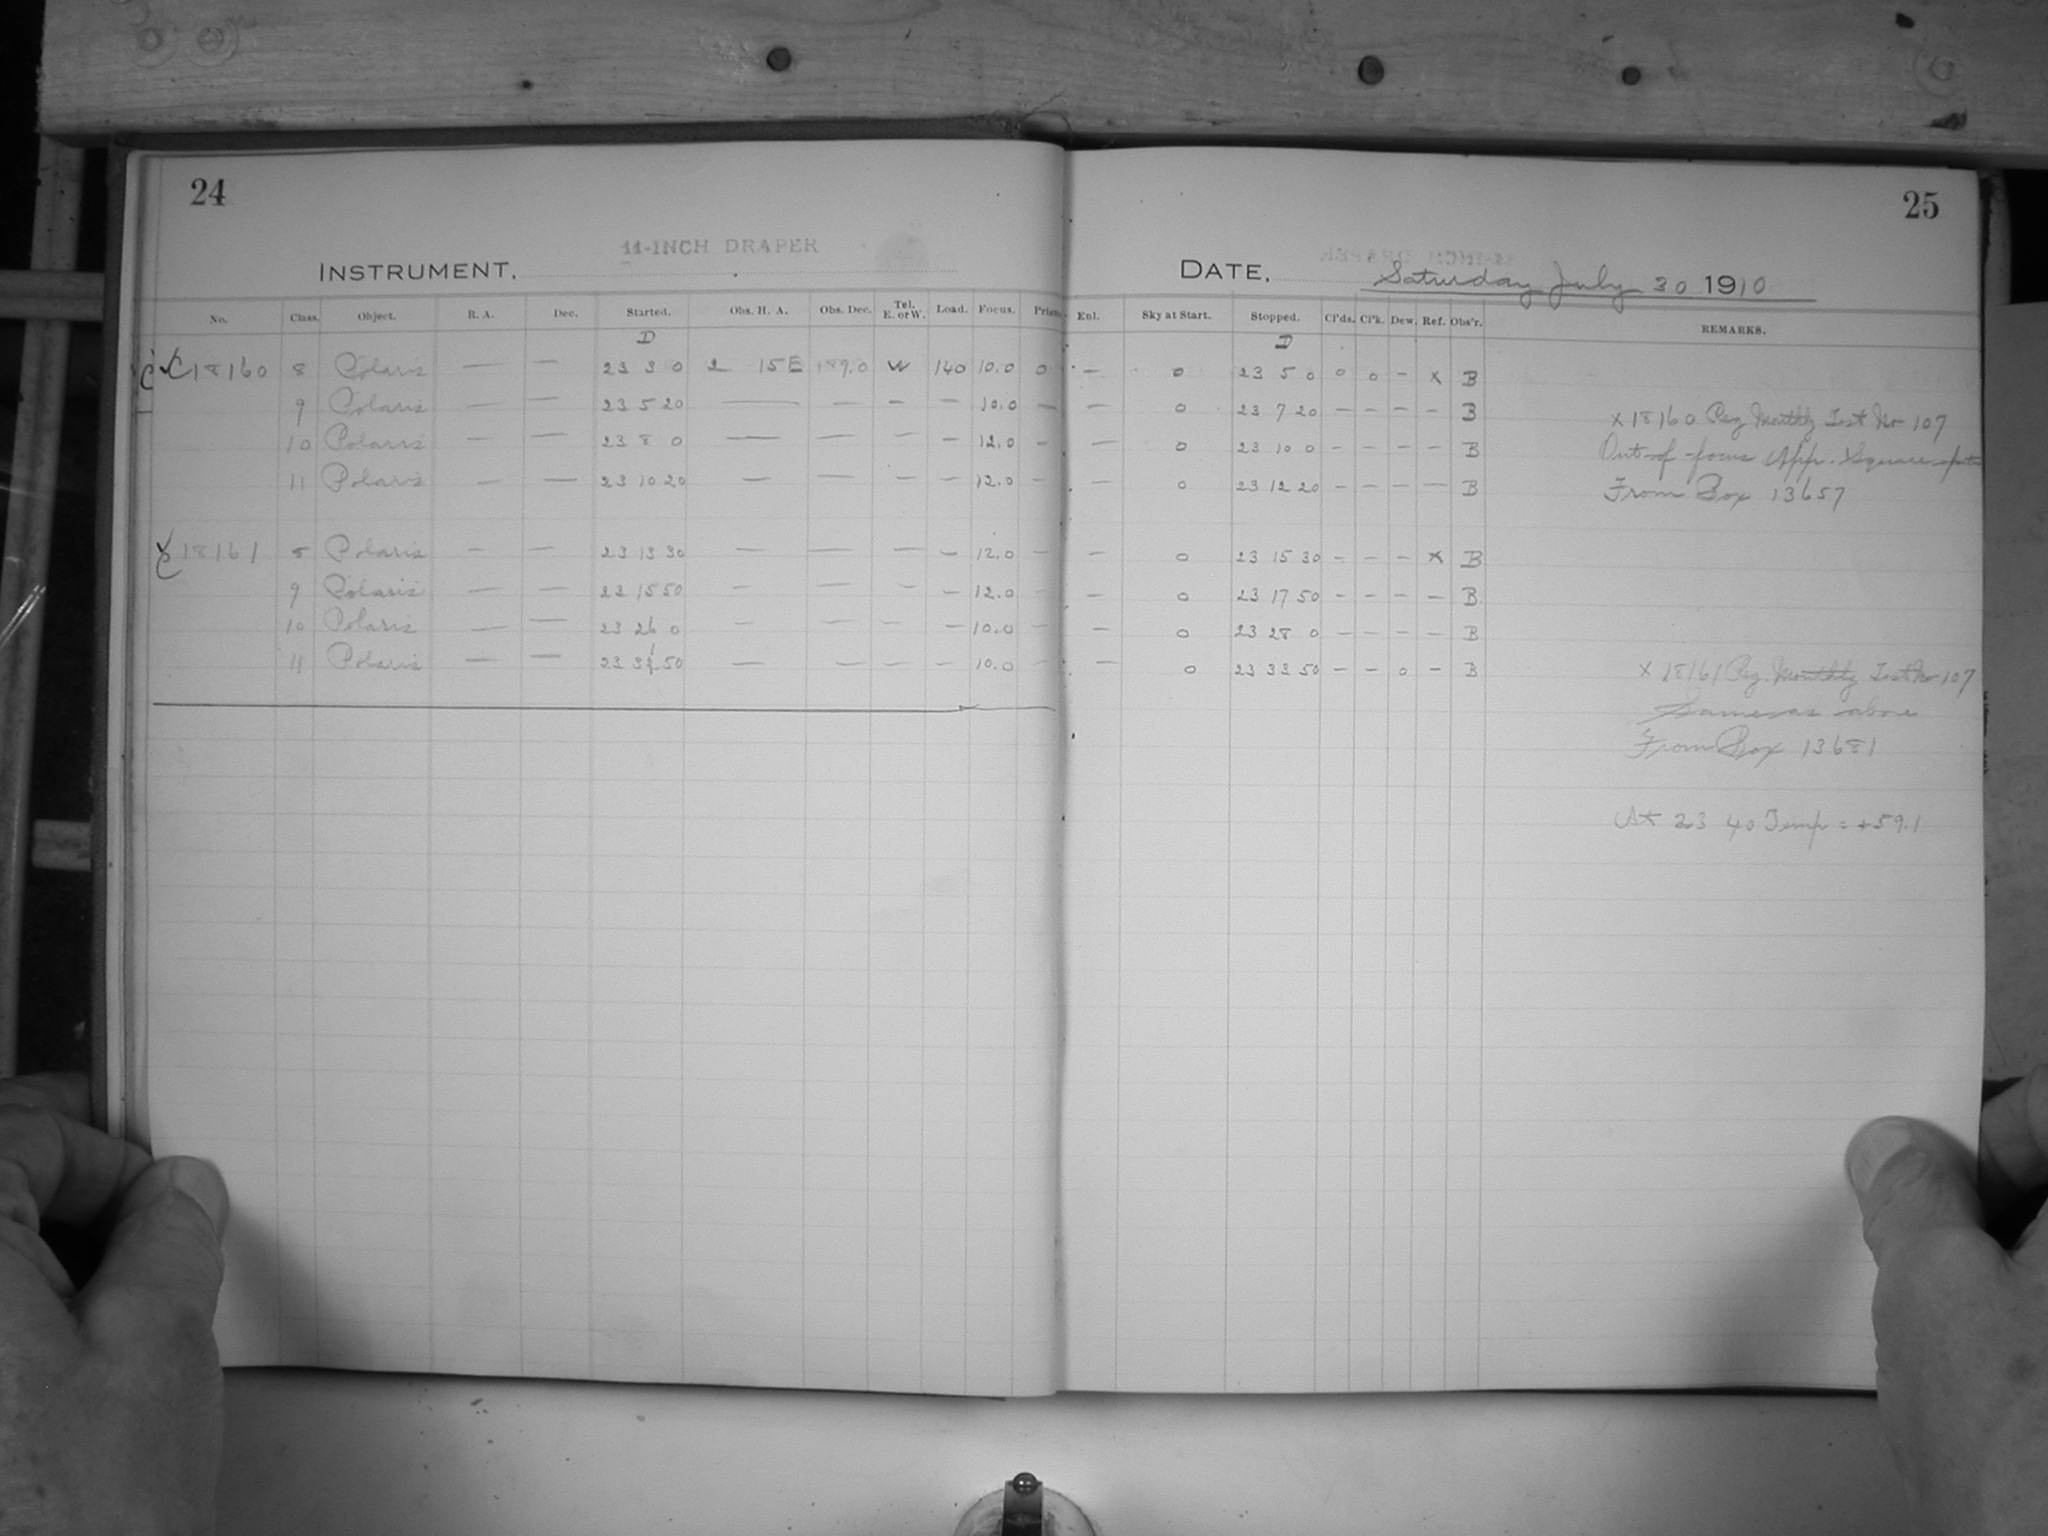 24
25
11-INCH DRAPER
INSTRUMENT.
DATE. Saturday July 30 1910
No. Class. Object. R. A. Dec. Started. Obs. H. A. Obs. Dec. Tel. E. or W. Load. Focus. Prism. Enl. Sky at Start. Stopped. Cl'ds. Cl'k. Dew. Ref. Obs'r. REMARKS.
D D
C 18160 8 Polaris — — 23 3 0 2 15 E +89.0 W 140 10.0 0 — 0 23 5 0 0 0 – x B
9 Polaris — — 23 5 20 — — – – 10.0 — — 0 23 7 20 – – – – B
x 18160 Reg Monthly Test No 107
10 Polaris — — 23 8 0 — — – – 12.0 – — 0 23 10 0 – – – – B
Out-of-focus App. Square
11 Polaris — — 23 10 20 — — – – 12.0 – — 0 23 12 20 – – – — B
From Box 13657
C 18161 8 Polaris — — 23 13 30 — — — – 12.0 – — 0 23 15 30 – – – x B
9 Polaris — — 23 15 50 – — – – 12.0 – – 0 23 17 50 – – – – B
10 Polaris — — 23 26 0 – — – – 10.0 – – 0 23 28 0 – – – – B
11 Polaris — — 23 31 50 — — – – 10.0 – — 0 23 33 50 – – 0 – B
x 18161 Reg. Monthly Test No 107
Same as above
From Box 13681
At 23 40 Temp = +59.1